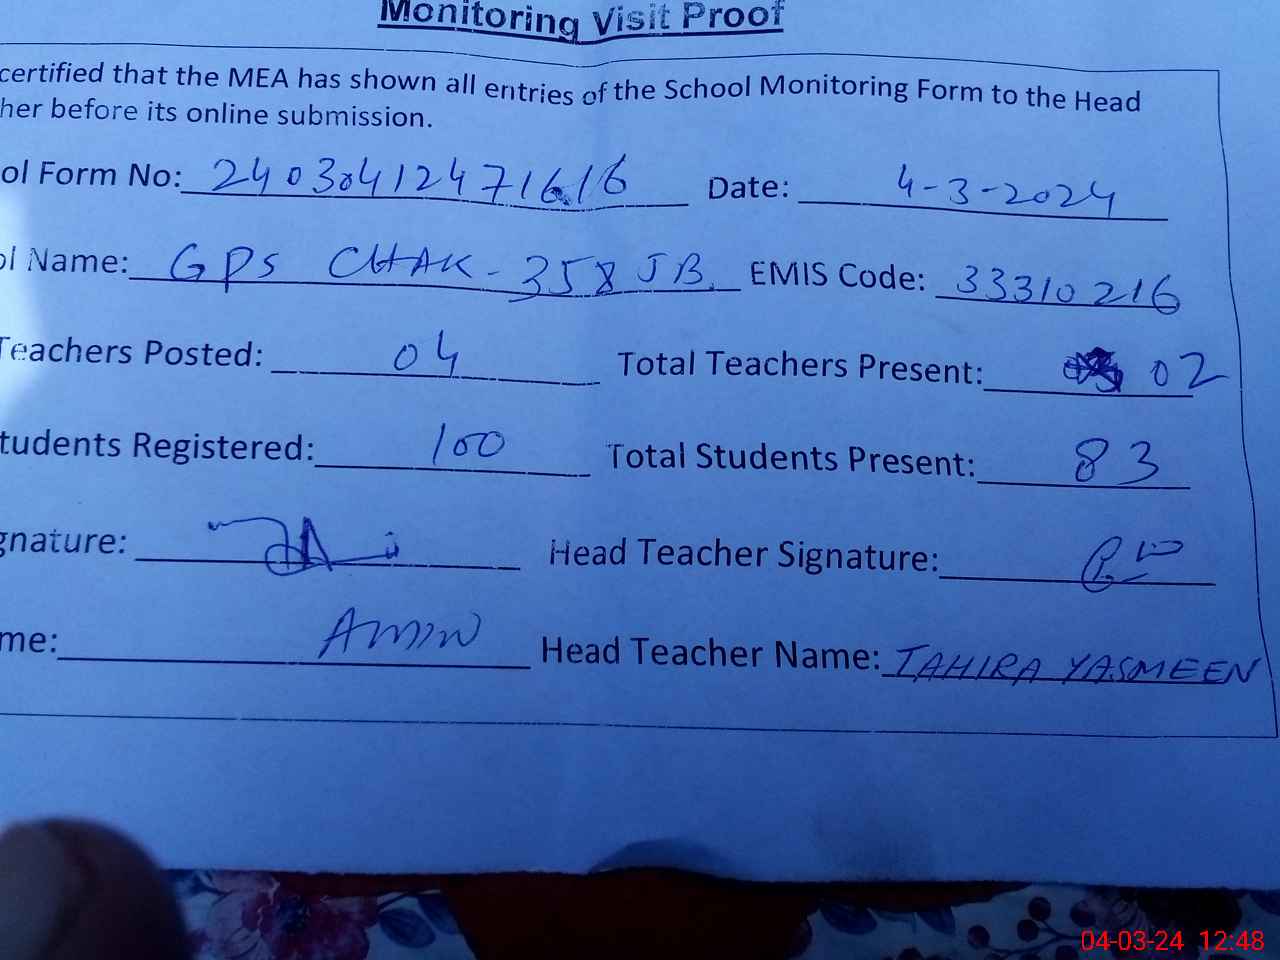 Monitoring Visit Proof
certified that the MEA has shown all entries of the School Monitoring Form to the Head
her before its online submission.
ol Form No: 24030412471616 Date: 4-3-2024
ol Name: GPS CHAK-358 JB. EMIS Code: 33310216
Teachers Posted: 04 Total Teachers Present: 02
tudents Registered: 100 Total Students Present: 83
gnature: Head Teacher Signature:
me: AMIN Head Teacher Name: TAHIRA YASMEEN
04-03-24 12:48